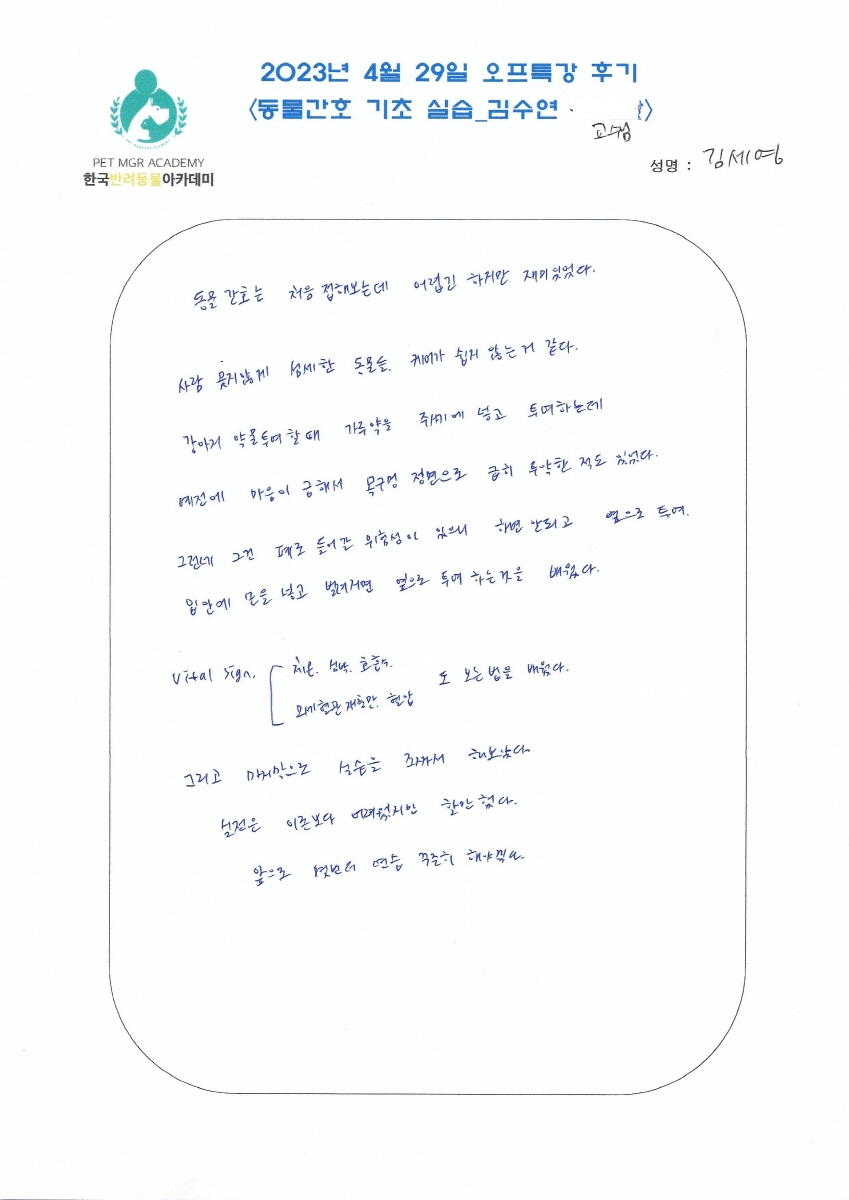 2023년 4월 29일 오프특강 후기
<동물간호 기초 실습_김수연
교수님
PET MGR ACADEMY
한국반려동물아카데미
성명 : 김세영
동물 간호는 처음 접해보는데 어렵긴 하지만 재미있었다.
사람 못지않게 섬세한 동물들 케어가 쉽지 않는거 같다.
강아지 약물투여할 때 가루약을 주사기에 넣고 투여하는데
예전에 마음이 급해서 목구멍 정면으로 급히 투약한 적도 있었다.
그런데 그건 폐로 들어간 위험성이 있으니 하면 안되고 옆으로 투여.
입안에 문을 넣고 벌려지면 옆으로 투여하는것을 배웠다.
Vital sign. 체온. 심박. 호흡수.
모세혈관재충만. 혈압 도 보는법을 배웠다.
그리고 마지막으로 실습을 해보았다.
실전은 이론보다 어려웠지만 할만 했다.
앞으로 연습 꾸준히 해야겠다.